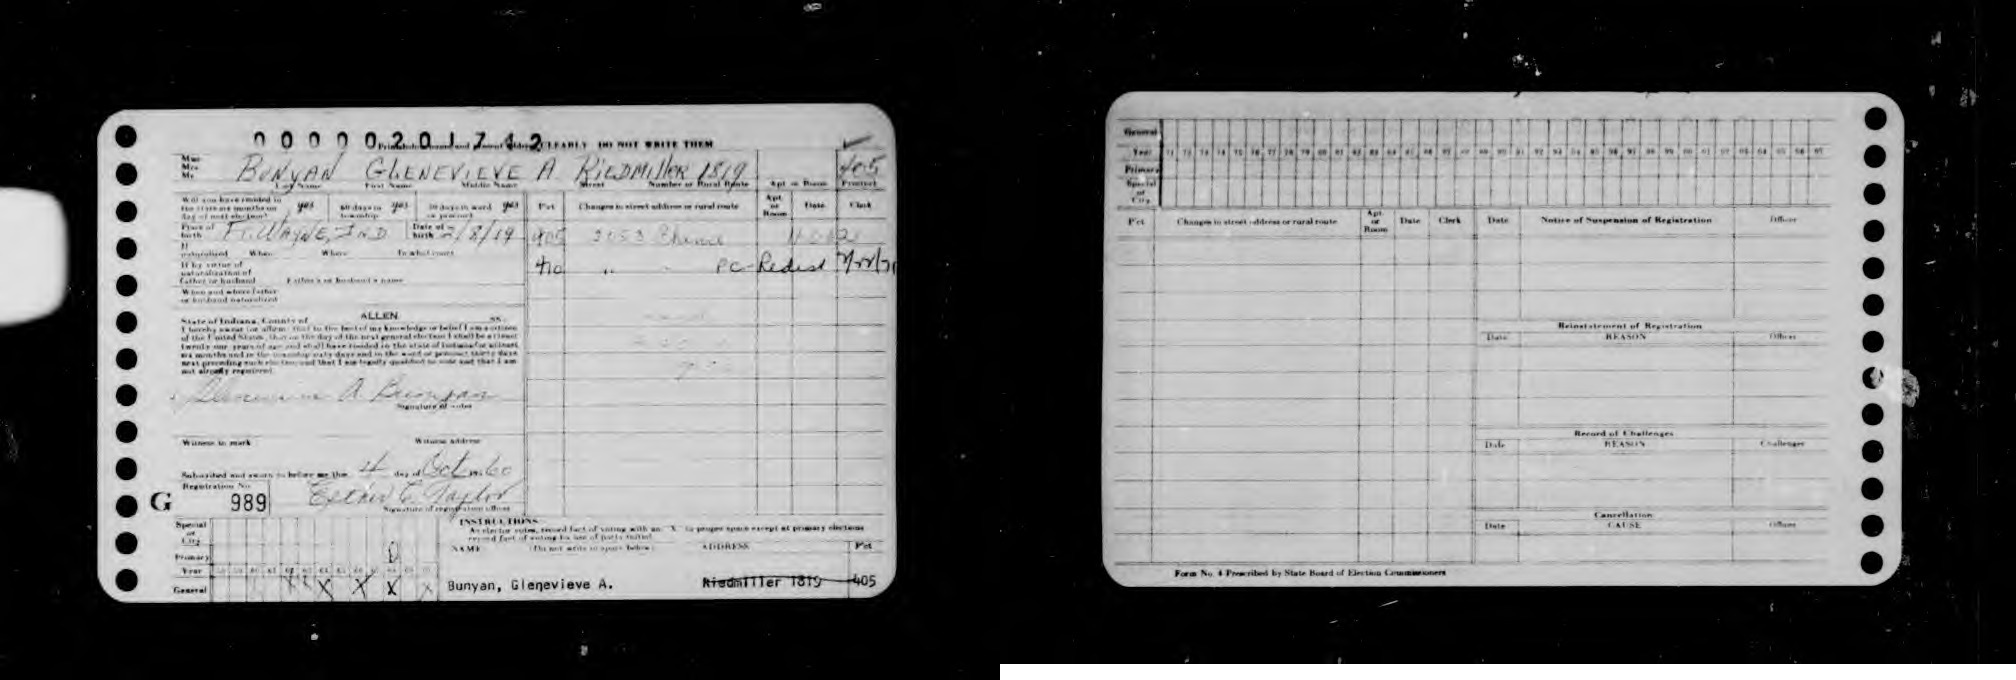 0000201742
Print Name and Street Address CLEARLY DO NOT WRITE THEM
Miss
Mrs
Mr
BUNYAN GLENEVIEVE A RIEDMILLER 1819 405
Last Name First Name Middle Name Street Number or Rural Route Apt or Room Precinct
Will you have resided in the state six months on day of next election? yes 60 days in township yes 30 days in ward or precinct yes
Pct Changes in street address or rural route Apt or Room Date Clerk
Place of birth FT. WAYNE, IND Date of birth 2/8/19
405 3053
If naturalized When Where In what court
410 " " PC-Redist
If by virtue of naturalization of father or husband Father's or husband's name
When and where father or husband naturalized
State of Indiana, County of ALLEN SS:
I hereby swear (or affirm) that to the best of my knowledge or belief I am a citizen
of the United States, that on the day of the next general election I shall be at least
twenty-one years of age and shall have resided in the state of Indiana for at least
six months and in the township sixty days and in the ward or precinct thirty days
next preceding such election and that I am legally qualified to vote and that I am
not already registered.
Glenevieve A. Bunyan
Signature of voter
Witness to mark Witness address
Subscribed and sworn to before me this 4 day of Oct 1960
Registration No.
G 989 Esther C. Taylor
Signature of registration officer
INSTRUCTIONS
As elector votes, record fact of voting with an "X" in proper space except at primary elections
record fact of voting by use of party initial
Special or City
Primary D
Year
General X X X X
NAME (Do not write in space below) ADDRESS Pct
Bunyan, Glenevieve A. Riedmiller 1819 405
General
Year 71 72 73 74 75 76 77 78 79 80 81 82 83 84 85 86 87 88 89 90 91 92 93 94 95 96 97 98 99 00 01 02 03 04 05 06 07
Primary
Special or City
Pct Changes in street address or rural route Apt or Room Date Clerk Date Notice of Suspension of Registration Officer
Reinstatement of Registration
Date REASON Officer
Record of Challenges
Date REASON Challenger
Cancellation
Date CAUSE Officer
Form No. 4 Prescribed by State Board of Election Commissioners